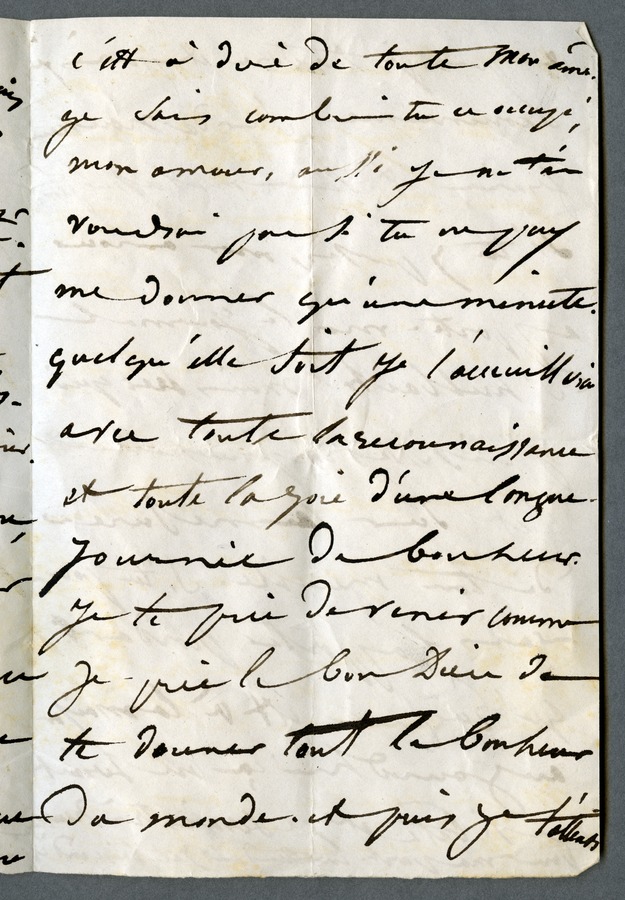 c'est à dire de toute mon âme.
je sais combien tu es occupé,
mon amour, aussi je ne t'en
voudrai pas si tu ne peux
me donner qu'une minute.
quelqu'elle soit je l'accueillerai
avec toute la reconnaissance
et toute la joie d'une longue
journée de bonheur.
Je te prie de venir comme
je prie le bon Dieu de
te donner tout le bonheur
du monde. et puis je t'attends